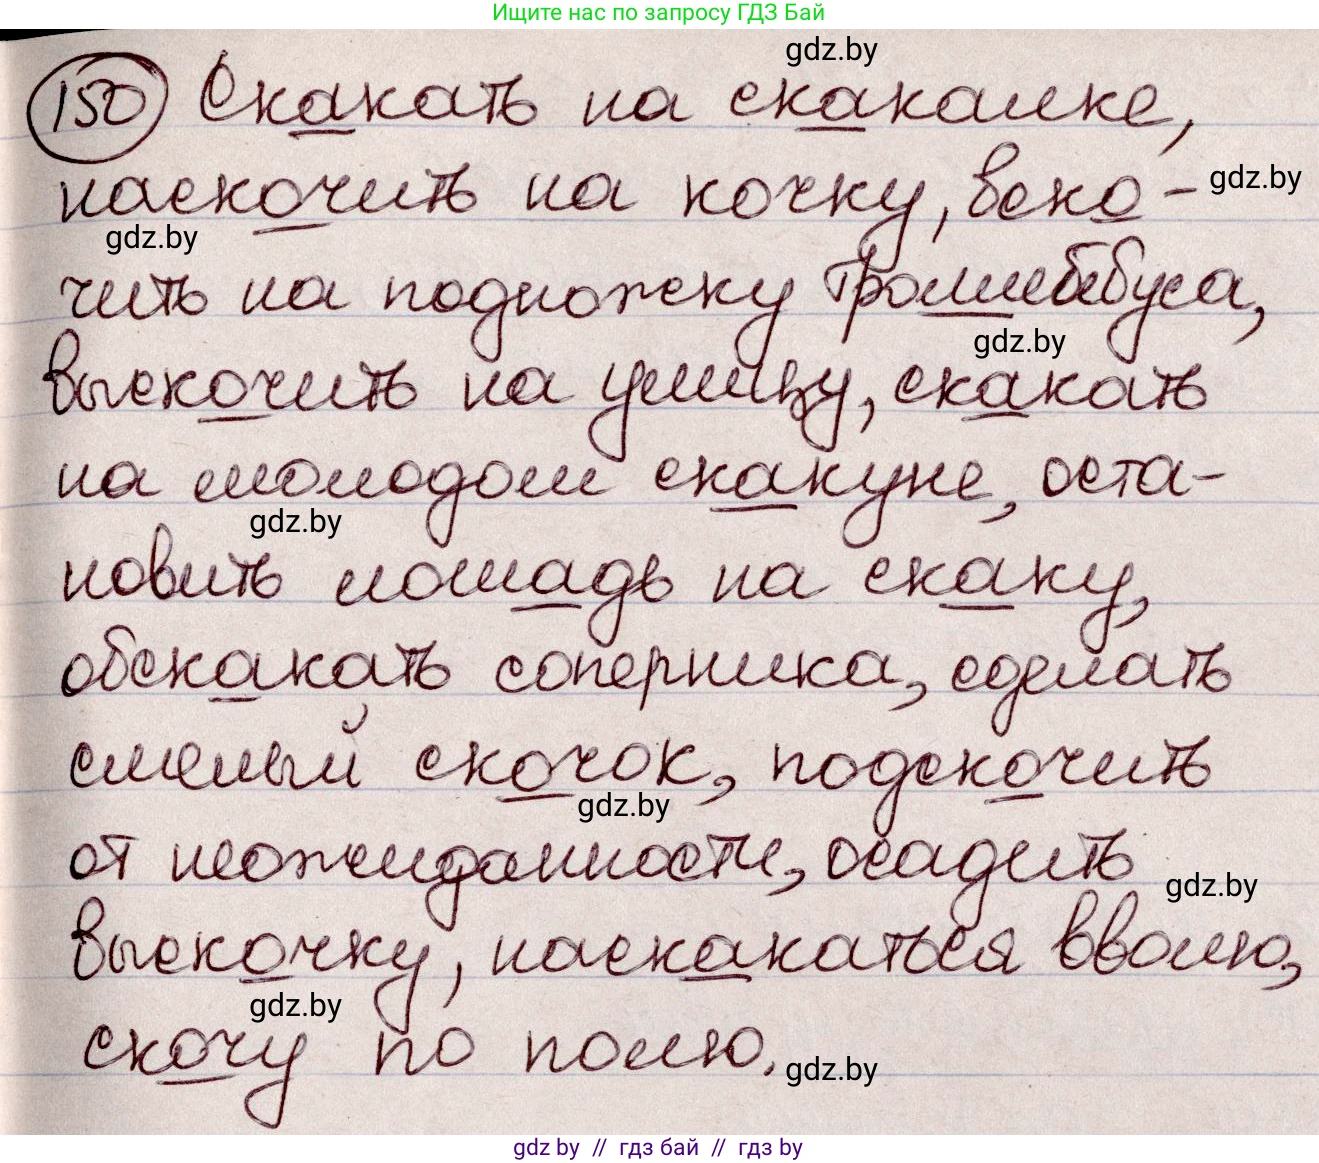 Ищите нас по запросу ГДЗ Бай
gdz.by
150 Скакать на скакалке,
наскочить на кочку, вско-
gdz.by
gdz.by
чить на подножку троллейбуса,
gdz.by
выскочить на улицу, скакать
на молодом скакуне, оста-
gdz.by
новить лошадь на скаку,
обскакать соперника, сделать
смелый скочок, подскочить
gdz.by
от неожиданности, осадить
gdz.by
выскочку, наскакаться вволю,
gdz.by
скочу по полю.
gdz.by
gdz by // гдз бай // гдз by